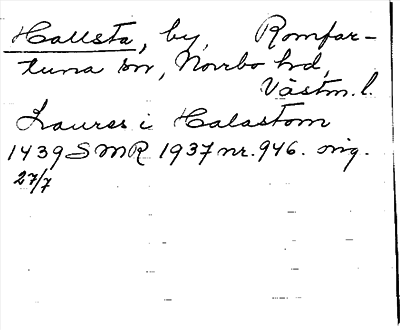 Hallsta, by, Romfar-
tuna sn, Norrbo hd,
Västm. l.
Laures i Halastom
1439 SMR 1937 nr. 946. orig.
27/7